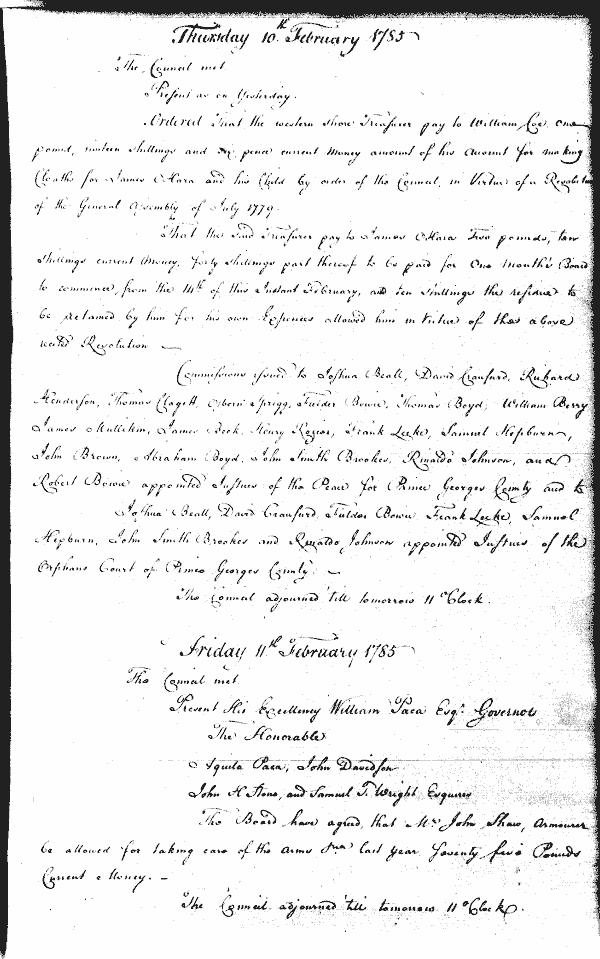 Thursday 10th February 1785
The Council met
Present as on Yesterday.
Ordered That the western shore Treasurer pay to William Coe one
pound, nineteen shillings and six pence current money amount of his account for making
Cloaths for James OHara and his Child by order of the Council, in Virtue of a Resolution
of the General Assembly of July 1779.
That the said Treasurer pay to James OHara Two pounds, ten
shillings current money, forty shillings part thereof to be paid for one month's Board
to commence from the 14th of this Instant February, and ten shillings the residue to
be retained by him for his own Expences allowed him in Virtue of the above
recited Resolution —
Commissions issued to Joshua Beall, David Craufurd, Richard
Henderson, Thomas Clagett, Osborn Sprigg, Fielder Bowie, Thomas Boyd, William Berry
James Mullikin, James Beck, Henry Rozier, Frank Leeke, Samuel Hepburn,
John Brown, Abraham Boyd, John Smith Brookes, Rinaldo Johnson, and
Robert Bowie appointed Justices of the Peace for Prince Georges County and to
Joshua Beall, David Craufurd, Fielder Bowie Frank Leeke, Samuel
Hepburn, John Smith Brookes and Rinaldo Johnson appointed Justices of the
Orphans Court of Prince Georges County. —
The Council adjourned till tomorrow 11 oClock.
Friday 11th February 1785
The Council met
Present His Excellency William Paca Esqr. Governor
The Honorable
Aquila Paca, John Davidson
John H Stone, and Samuel T. Wright Esquires
The Board have agreed that Mr John Shaw, Armourer
be allowed for taking care of the arms last year Seventy five Pounds
Current Money. —
The Council adjourned till tomorrow 11 oClock.